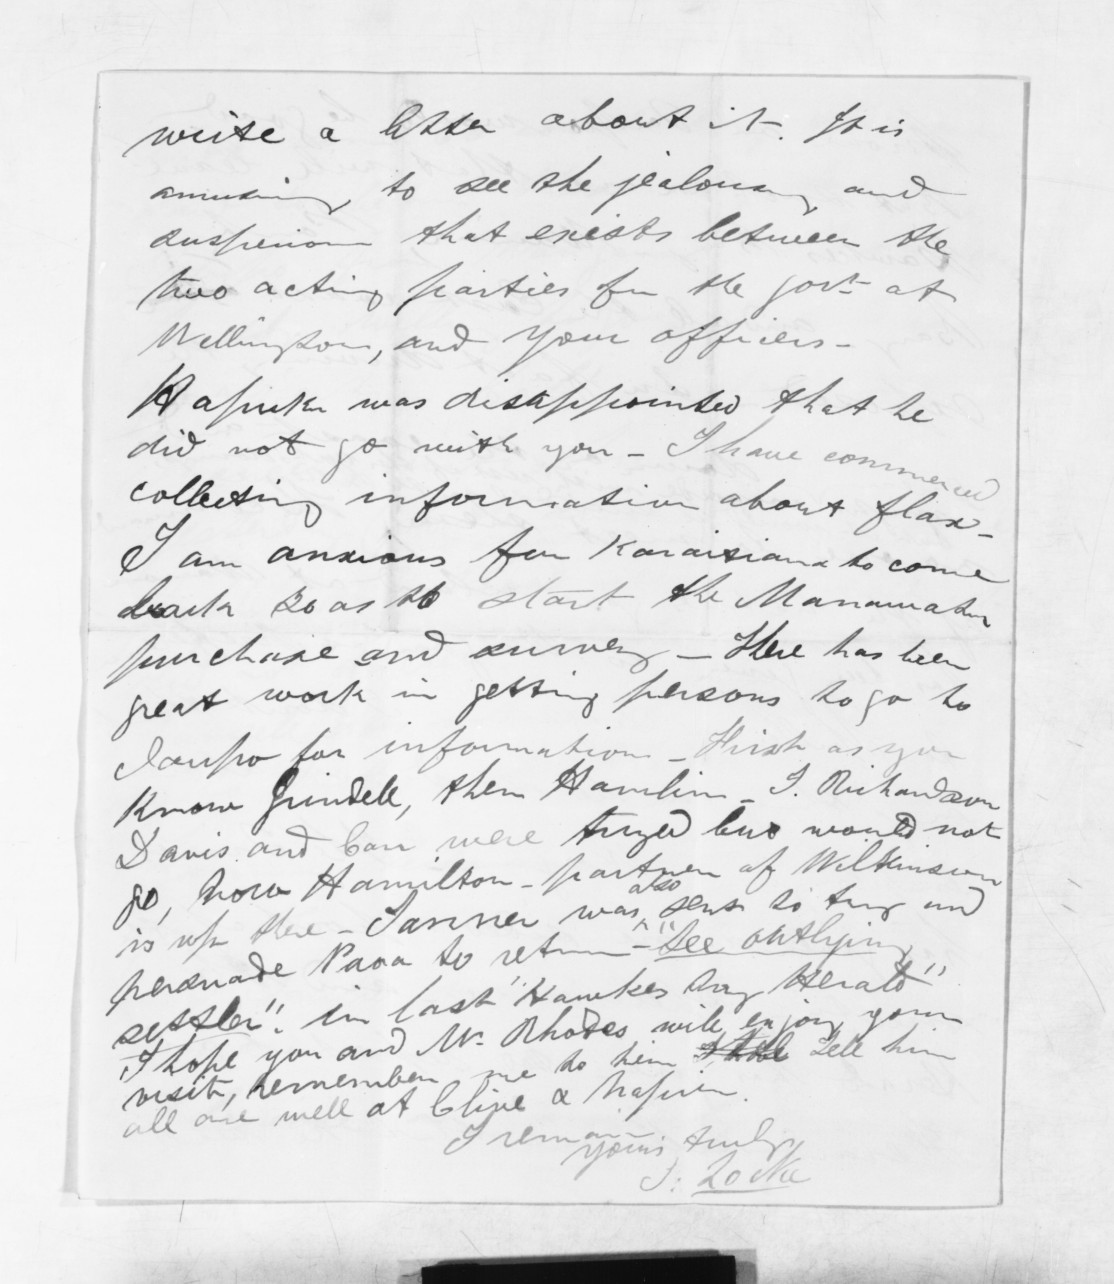 write a letter about it. It is
amusing, to see the jealousy and
suspicion that exists between the
two acting parties for the govt at
Wellington, and your officers -
Hapuku was disappointed that he
did not go with you - I have commenced
collecting information about flax -
I am anxious for Karaitiana to come
back so as to start the Manawatu
purchase and survey - There has been
great work in getting persons to go to
Taupo for information - First as you
know Grindell, then Hamlin - T. Richardson
Davis and Carr were tryed but would not
go, now Hamilton - partner of Wilkinson
is up there - Tanner was also sent to try and
persuade Paoa to return - "See outlying
settler". in last "Hawkes Bay Herald"
I hope you and Mr. Rhodes will enjoy your
visit, remember me to him tell him
all are well at Clive & Napier.
I remain
yours truly
S. Locke